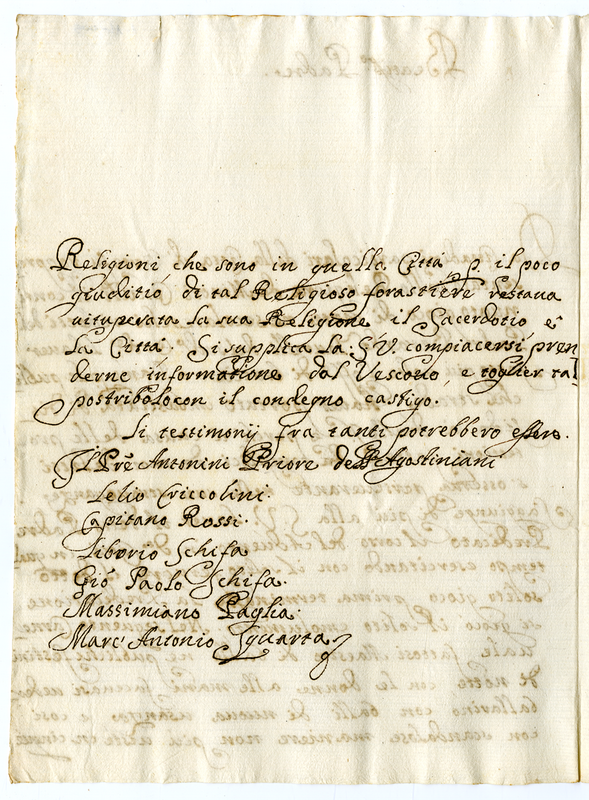 Religioni che sono in quella Città p. il poco
giuditio di tal Religioso forastiere restava
vituperata la sua Religione il Sacerdotio e
la Città. Si supplica la S.V. compiacersi pren
derne informatione dal Vescovo, e toglier tal
postribolo con il condegno castigo.
Li testimonij fra tanti potrebbero essere.
Il Pre Antonini Priore de PP Agostiniani
Lelio Criccolini.
Capitano Rossi.
Liborio Schifa
Gio Paolo Schifa.
Massimiano Paglia.
Marc' Antonio Sguarta